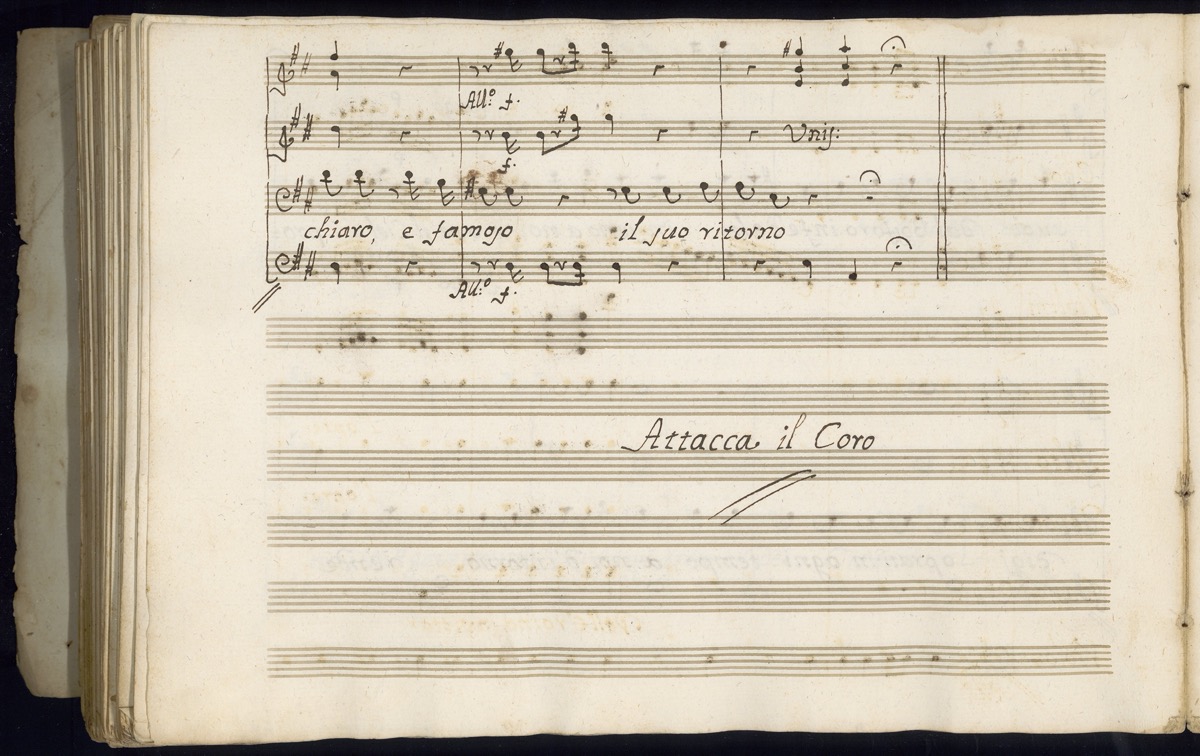 All:º f.
Unis:
f.
chiaro, e famoso il suo ritorno
All:º f.
Attacca il Coro